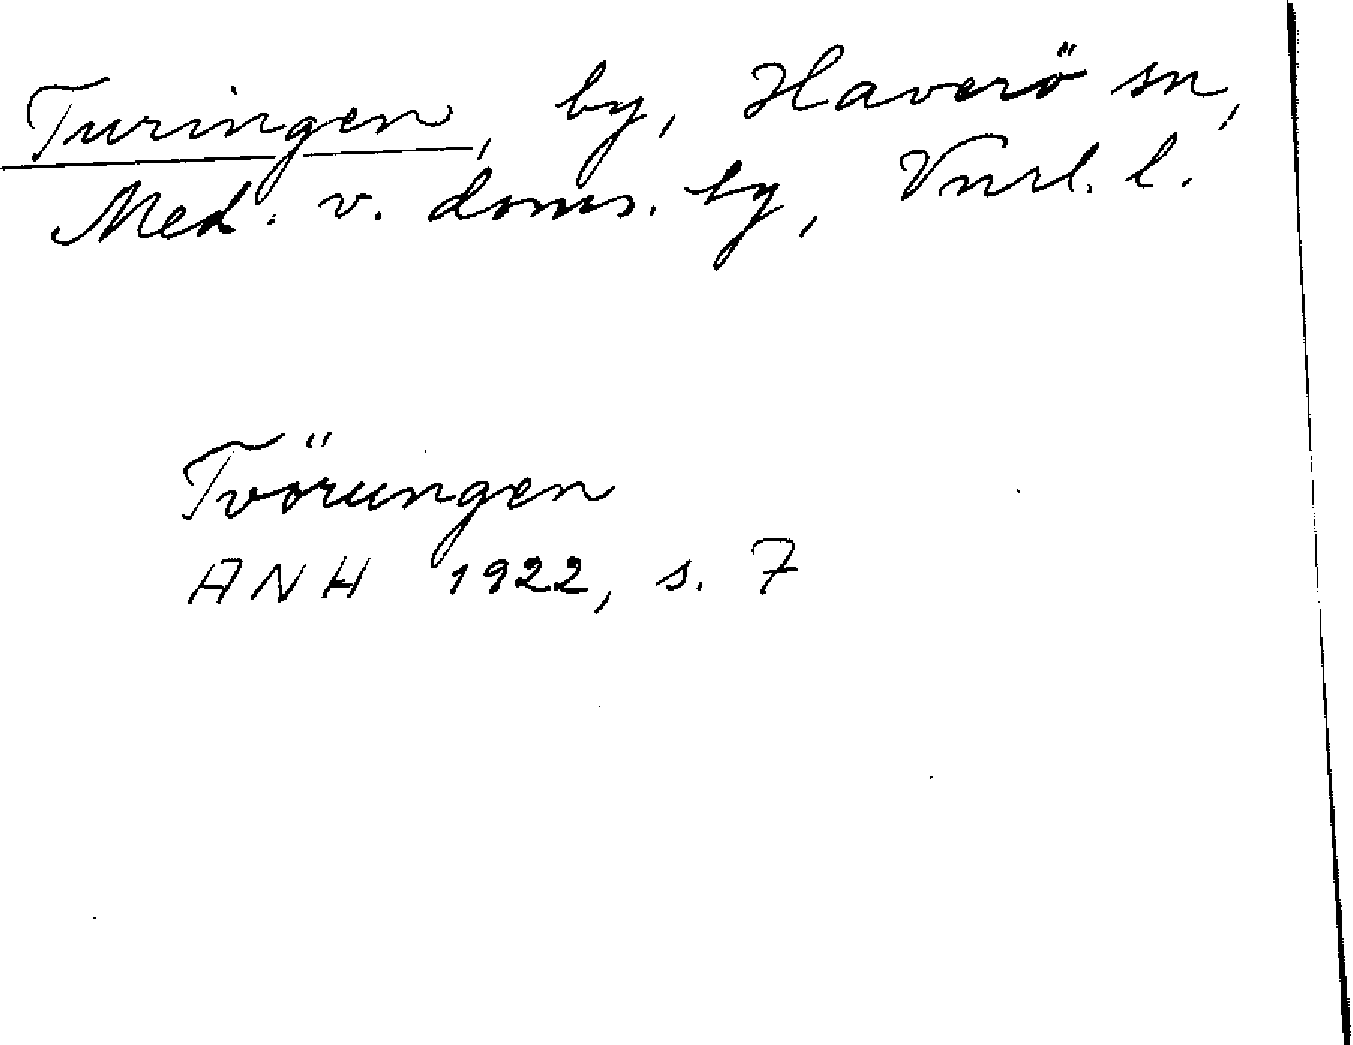 Turingen, by, Haverö sn,
Med. v. doms. by, Vnrl. l.
Tvörungen
ANH 1922, s. 7